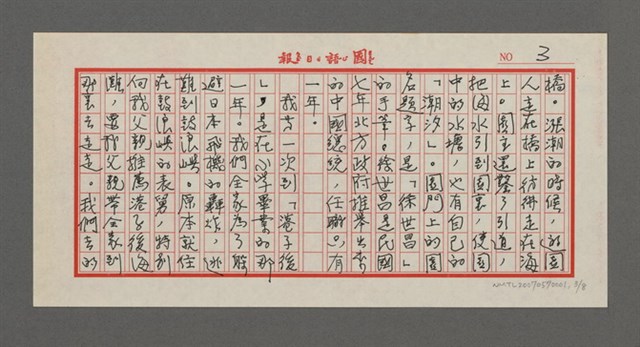 國語日報
NO 3
橋。漲潮的時候,遊園
人走在橋上彷彿走在海
上。園主還鑿了引道,
把海水引到園裏,使園
中的水塘,也有自己的
「潮汐」。園門上的園
名題字,是「徐世昌」
的手筆。徐世昌是民國
七年北方政府推舉出來
的中國總統,任職有
一年。
我第一次到「港子後
」,是在小學畢業的那
一年。我們全家為了躲
避日本飛機的轟炸,逃
難到鼓浪嶼。原本就住
在鼓浪嶼的表舅,特別
向我父親推薦港子後海
灘,要我父親帶全家到
那裏去走走。我們去的
NMTL20070590001, 3/8